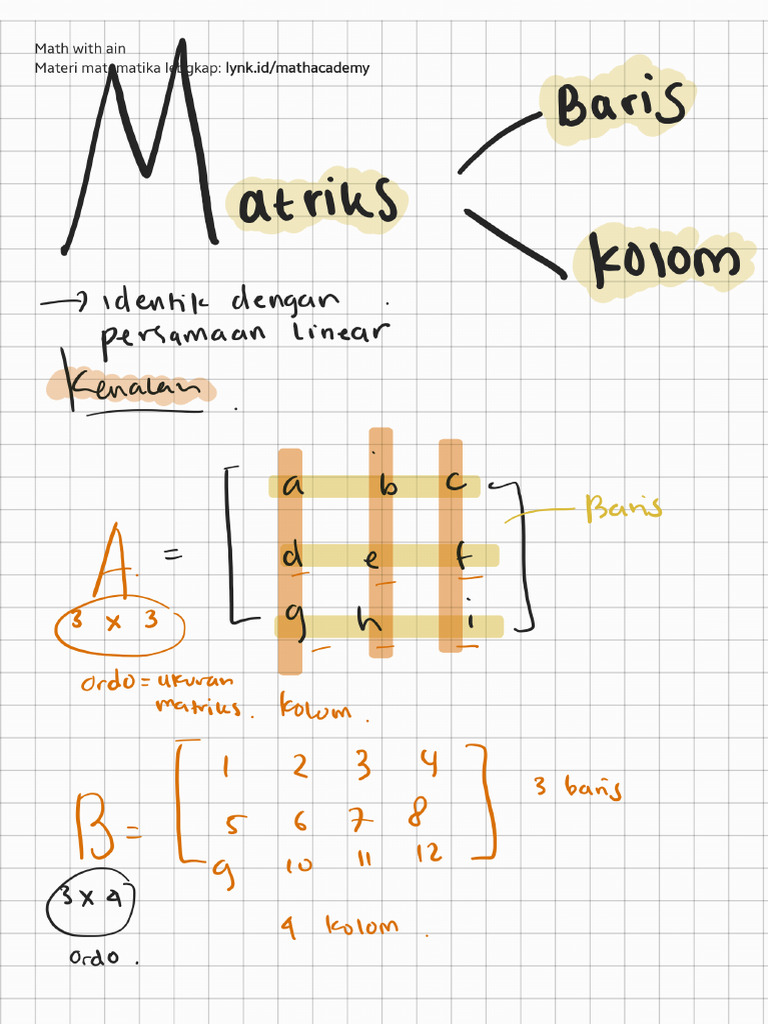 Math with ain
Materi matematika lengkap: lynk.id/mathacademy
Matriks
Baris
kolom
→ identik dengan
persamaan linear
Kenalan
A = [ a b c
d e f
g h i ]
Baris
3 x 3
ordo = ukuran
matriks. kolom.
B = [ 1 2 3 4
5 6 7 8
9 10 11 12 ]
3 baris
3 x 4
ordo.
4 kolom.